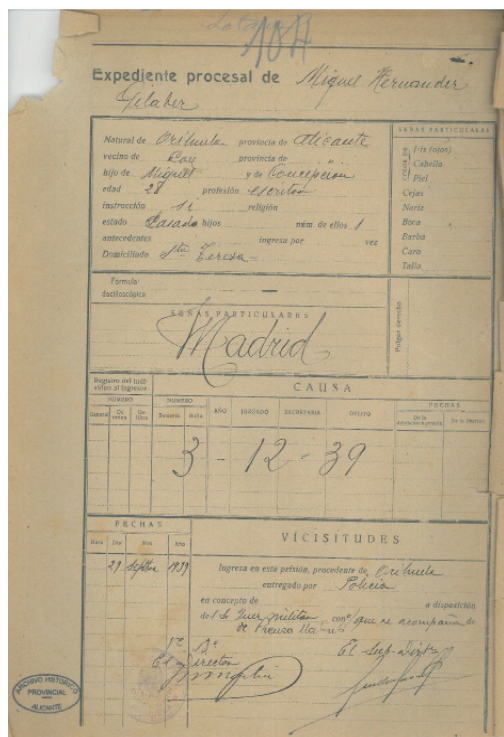 104
Expediente procesal de Miguel Hernander
Gilaber
Natural de Orihuela provincia de Alicante
vecino de Cox provincia de "
hijo de Miguel y de Concepcion
edad 28 profesión escritor
instrucción si religión
estado Casado hijos núm. de ellos 1
antecedentes ingresa por vez
Domiciliado Sta Teresa
SEÑAS PARTICULARES
COLOR DE
Iris (ojos)
Cabello
Piel
Cejas
Nariz
Boca
Barba
Cara
Talla
Fórmula
dactiloscópica —
Pulgar derecho
SEÑAS PARTICULARES
Madrid
Registro del indi-
viduo al ingreso
CAUSA
NUMERO NUMERO FECHAS
General AÑO JUZGADO SECRETARIA DELITO
3 - 12 - 39
FECHAS VICISITUDES
Hora Día Mes Año
29 Septbre 1939
Ingresa en esta prisión, procedente de Orihuela
entregado por Policia
en concepto de a disposición
del Juez militar que se acompaña
de Prensa
Vº Bº
El Director El Sub-Dirtor
ARCHIVO HISTÓRICO
PROVINCIAL
ALICANTE